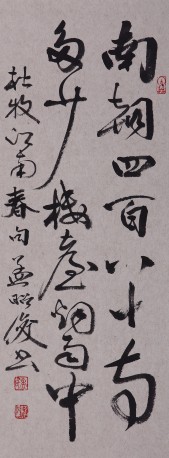 南朝四百八十寺
多少楼臺烟雨中
杜牧江南春句孟昭俊书